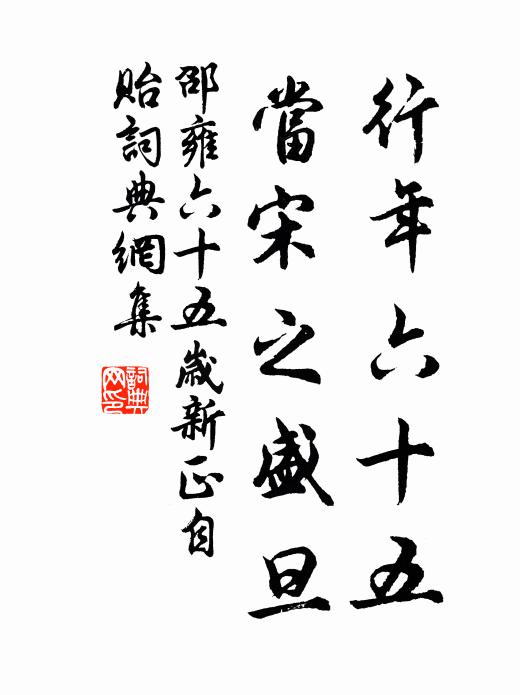 行年六十五
當宋之盛旦
邵雍六十五歲新正自
貽詞典網集
詞典
网印